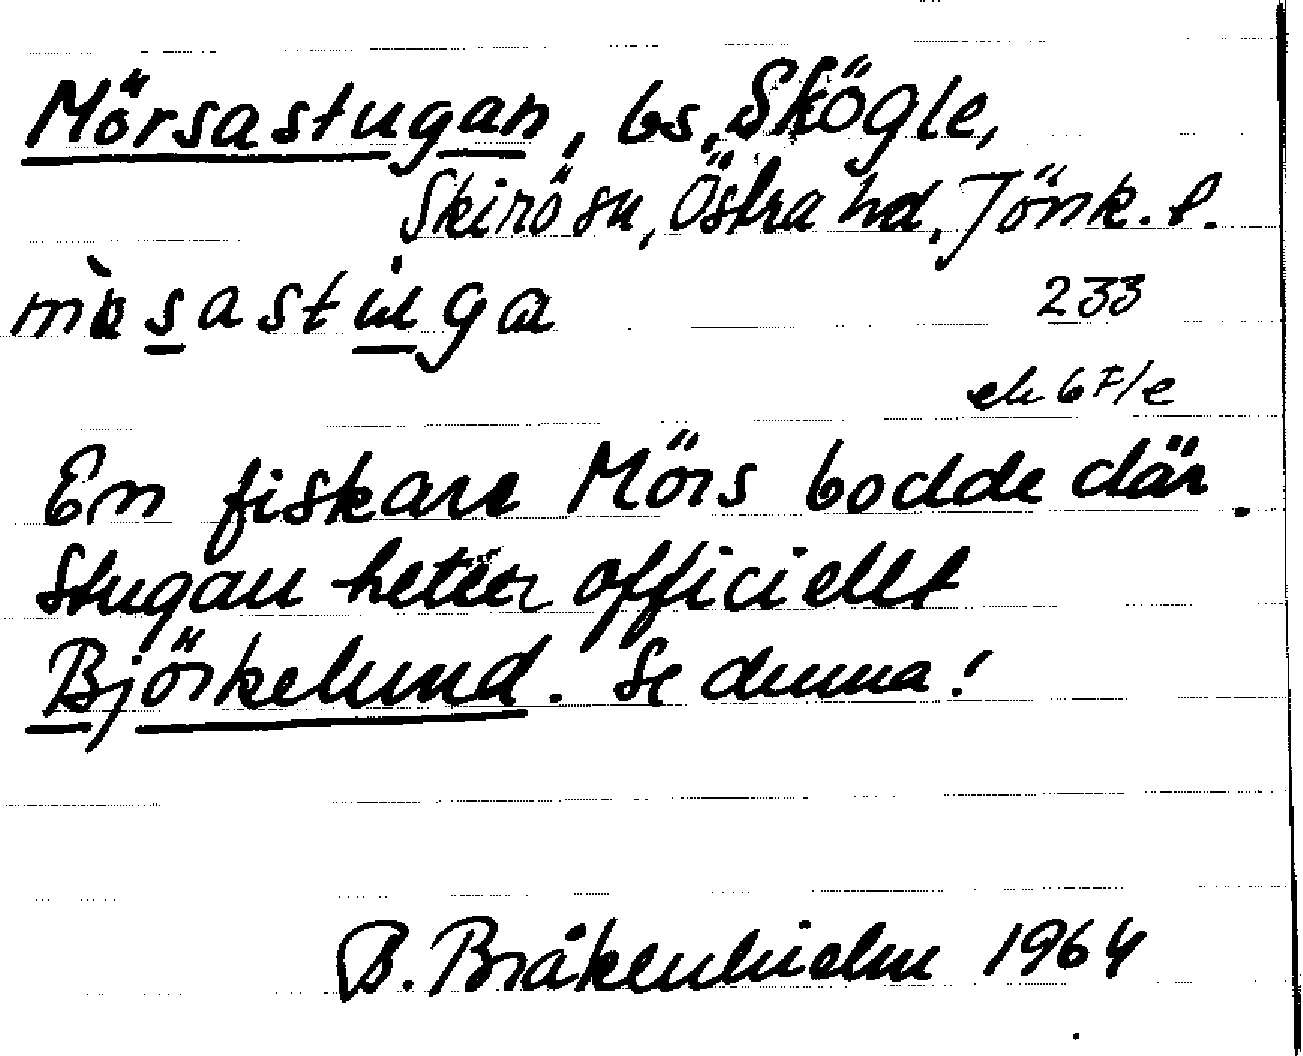 Mörsastugan, bs, Skögle,
Skirö sn, Östra hd, Jönk. l.
233
ek 6 F/e
En fiskare Mörs bodde där.
Stugan heter officiellt
Björkelund. Se denna!
B. Bråkenhielm 1964